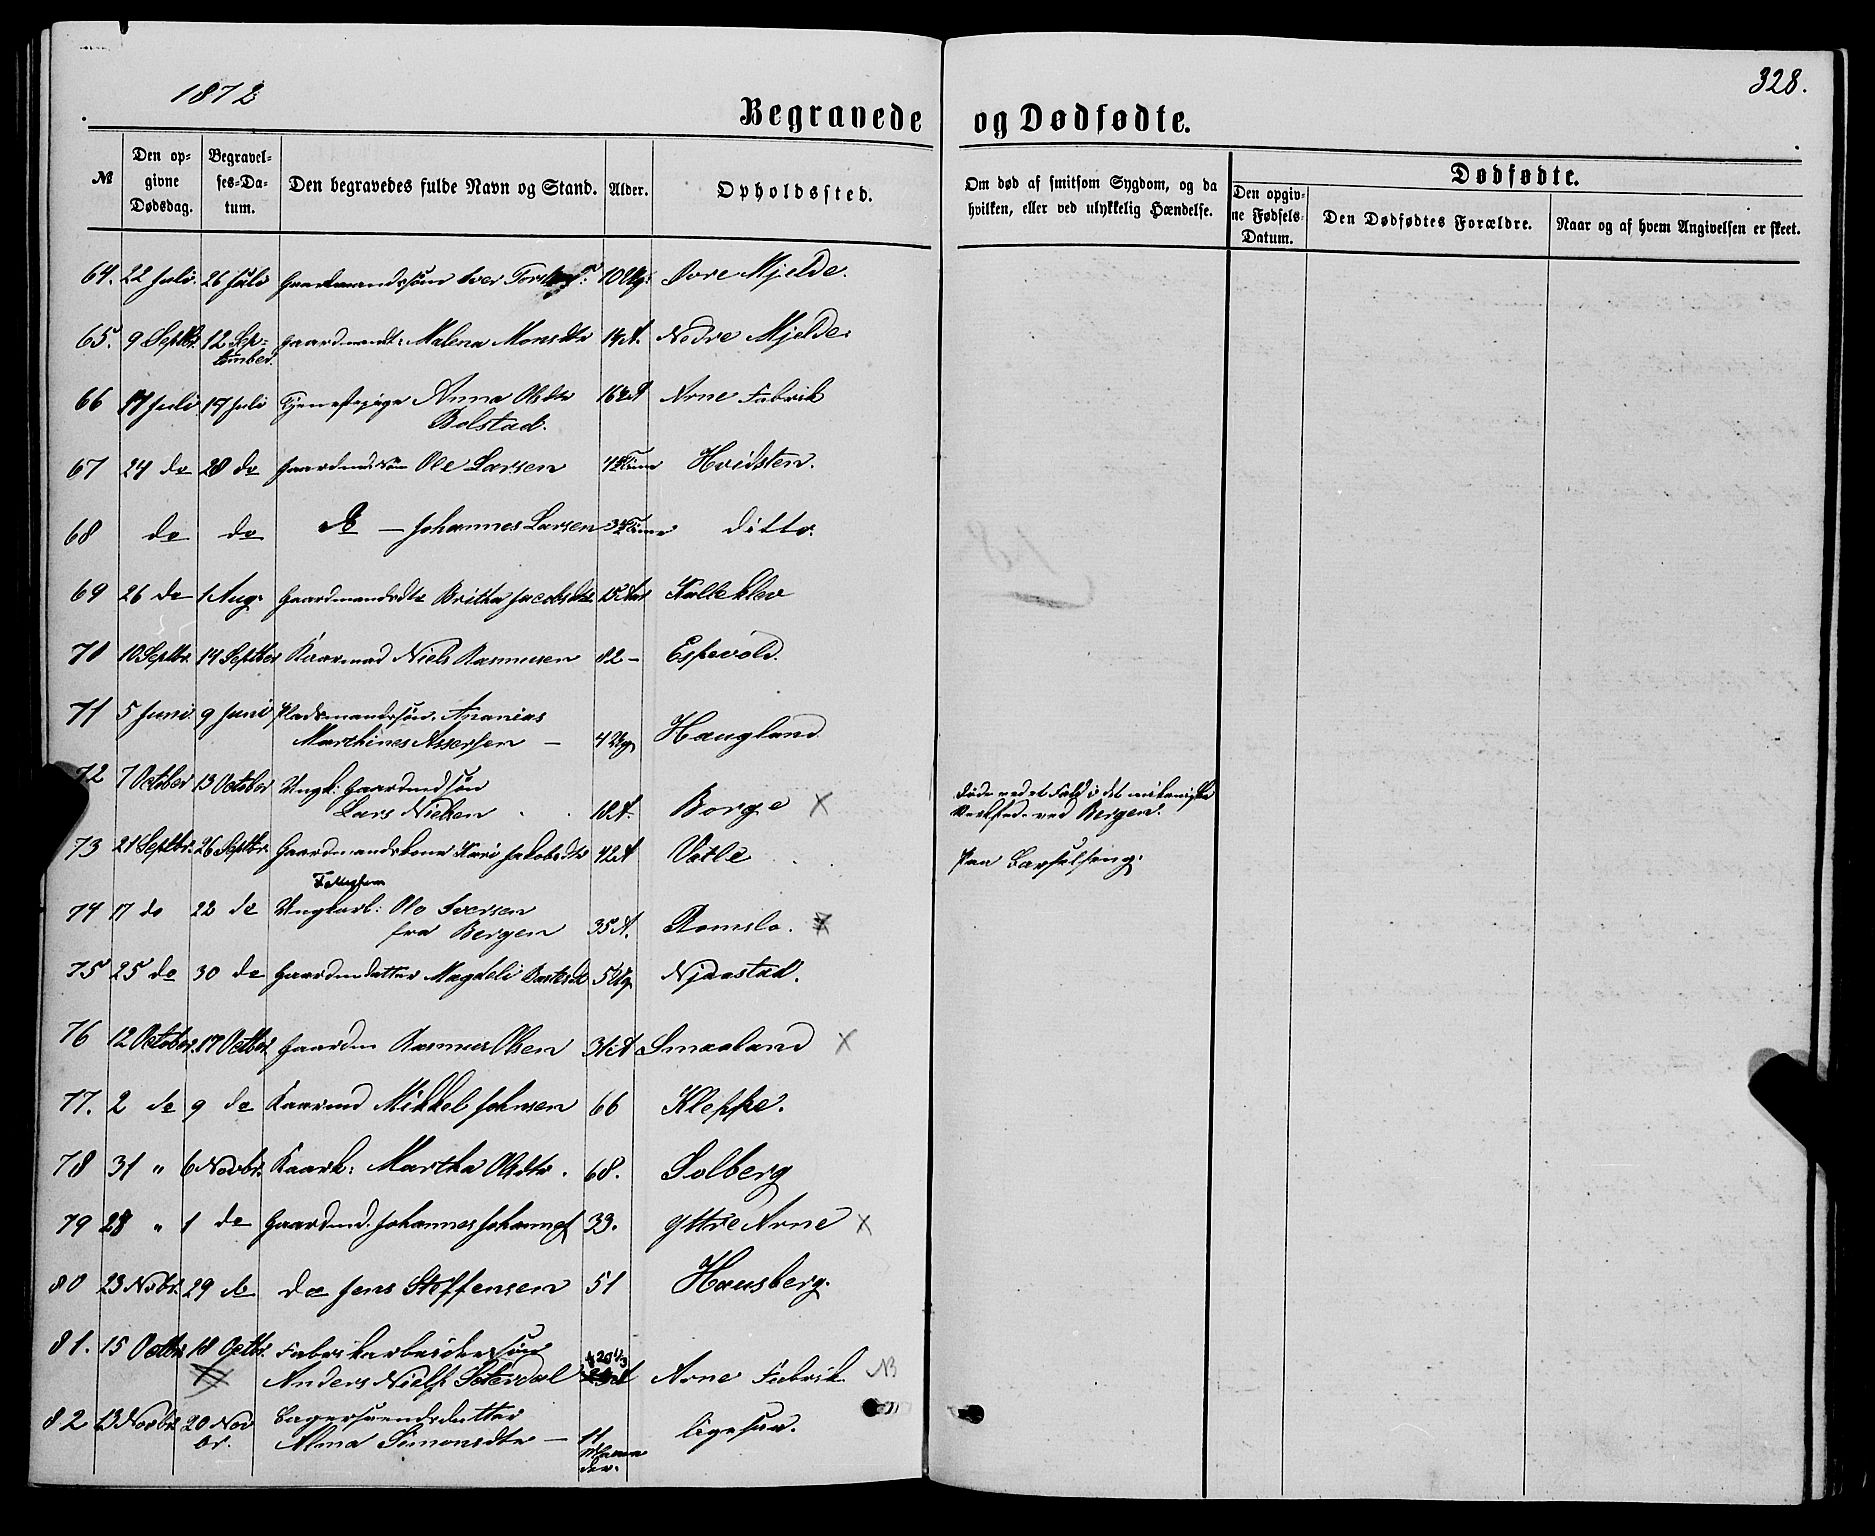 1872
328.
Begravede og Dødfødte.
№ Den opgivne Dødsdag. Begravelses-Datum. Den begravedes fulde Navn og Stand. Alder. Opholdssted. Om død af smitsom Sygdom, og da hvilken, eller ved ulykkelig Hændelse. Dødfødte. Den opgivne Fødsels-Datum. Den Dødfødtes Forældre. Naar og af hvem Angivelsen er skeet.
64. 22 Juli. 26 Juli Gaardmandssøn Iver 10 Ug: Øvre Mjelde.
65. 9 Septbr. 12 September. Gaardmandt: Malena Monsdtr 14 A. Nedre Mjelde.
66 17 Juli 17 Juli Tjenestepige Anna Olsdtr Arne Fabrik
Bolstad.
67 24 do 28 do Gaardmdssøn Ole Larsen Time Hvidsten.
68 do do do — Johannes Larsen Time ditto.
69 26 do 1 Aug. Gaardmandsdtr Britha Jacobsdtr Aar Kalleklev
70 10 Septbr. 14 Septbr Kaarmand Niels Rasmusen 82 – Espevold.
71 5 Juni 9 Juni Pladsmandssøn. Ananias
Marthines Assersen — 4 Ug Haugland
72 7 October 13 October Ungk: Gaardmdsøn
Lars Nielsen 18 A. Borge X Døde ved et Fald i det mekaniske
Verksted ved Bergen.
73 21 Septbr. 26 Septbr. Gaardmandskone Kari Jakobsdtr 42 A Vatle Paa Barselseng.
74 17 do 22 do Ungkarl: Ole Iversen
fra Bergen 35 A. Romslo. X
75 25 do 30 do Gaardmdatter Magdeli 5 Ug Njaastad.
76 12 October. 17 Octbr. Gaardm Rasmus Olsen Smaaland X
77. 2 do 9 do Kaarmd Mikkel Johnsen 66 Kleppe.
78 31 " 6 Novbr. Kaark: Martha Olsdtr. 68. Solberg
79 28 " 1 do Gaardmd. Johannes Johannes 33. Yttre Arne X
80 23 Novbr. 29 do do Jens Steffensen 51 Hausberg.
81. 15 Octbr 18 Octbr. Fabrikarbeidersøn
Anders Niels: Arne Fabrik NB
82 13 Novbr 20 Novbr. Lagersvendsdatter
Alma Simonsdtr — 11 Maaneder. ligesaa.